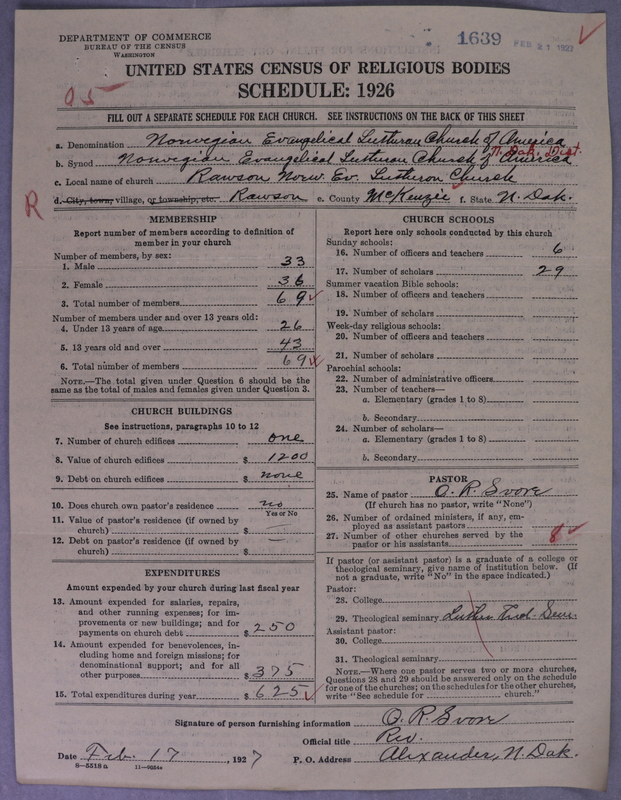 DEPARTMENT OF COMMERCE
BUREAU OF THE CENSUS
WASHINGTON
1639 FEB 21 1927
UNITED STATES CENSUS OF RELIGIOUS BODIES
SCHEDULE: 1926
05
FILL OUT A SEPARATE SCHEDULE FOR EACH CHURCH. SEE INSTRUCTIONS ON THE BACK OF THIS SHEET
a. Denomination Norwegian Evangelical Lutheran Church of America
N. Dak. Dist.
b. Synod Norwegian Evangelical Lutheran Church of America
c. Local name of church Rawson Norw. Ev. Lutheran Church
R
d. City, town, village, or township, etc. Rawson e. County McKenzie f. State N. Dak.
MEMBERSHIP
Report number of members according to definition of
member in your church
Number of members, by sex:
1. Male 33
2. Female 36
3. Total number of members 69
Number of members under and over 13 years old:
4. Under 13 years of age 26
5. 13 years old and over 43
6. Total number of members 69
NOTE.—The total given under Question 6 should be the
same as the total of males and females given under Question 3.
CHURCH BUILDINGS
See instructions, paragraphs 10 to 12
7. Number of church edifices one
8. Value of church edifices $ 1200
9. Debt on church edifices $ none
10. Does church own pastor's residence no
Yes or No
11. Value of pastor's residence (if owned by
church) $
12. Debt on pastor's residence (if owned by
church) $ —
EXPENDITURES
Amount expended by your church during last fiscal year
13. Amount expended for salaries, repairs,
and other running expenses; for im-
provements or new buildings; and for
payments on church debt $ 250
14. Amount expended for benevolences, in-
cluding home and foreign missions; for
denominational support; and for all
other purposes $ 375
15. Total expenditures during year $ 625
CHURCH SCHOOLS
Report here only schools conducted by this church
Sunday schools:
16. Number of officers and teachers 6
17. Number of scholars 29
Summer vacation Bible schools:
18. Number of officers and teachers
19. Number of scholars
Week-day religious schools:
20. Number of officers and teachers
21. Number of scholars
Parochial schools:
22. Number of administrative officers
23. Number of teachers—
a. Elementary (grades 1 to 8)
b. Secondary
24. Number of scholars—
a. Elementary (grades 1 to 8)
b. Secondary
PASTOR
25. Name of pastor O. R. Svore
(If church has no pastor, write "None")
26. Number of ordained ministers, if any, em-
ployed as assistant pastors
27. Number of other churches served by the
pastor or his assistants 8
If pastor (or assistant pastor) is a graduate of a college or
theological seminary, give name of institution below. (If
not a graduate, write "No" in the space indicated.)
Pastor:
28. College
29. Theological seminary Luther Theol. Sem.
Assistant pastor:
30. College
31. Theological seminary
NOTE.—Where one pastor serves two or more churches,
Questions 28 and 29 should be answered only on the schedule
for one of the churches; on the schedules for the other churches,
write "See schedule for church."
Signature of person furnishing information O. R. Svore
Official title Rev.
Date Feb. 17, 1927 P. O. Address Alexander, N. Dak.
8—5318a 11—9064a